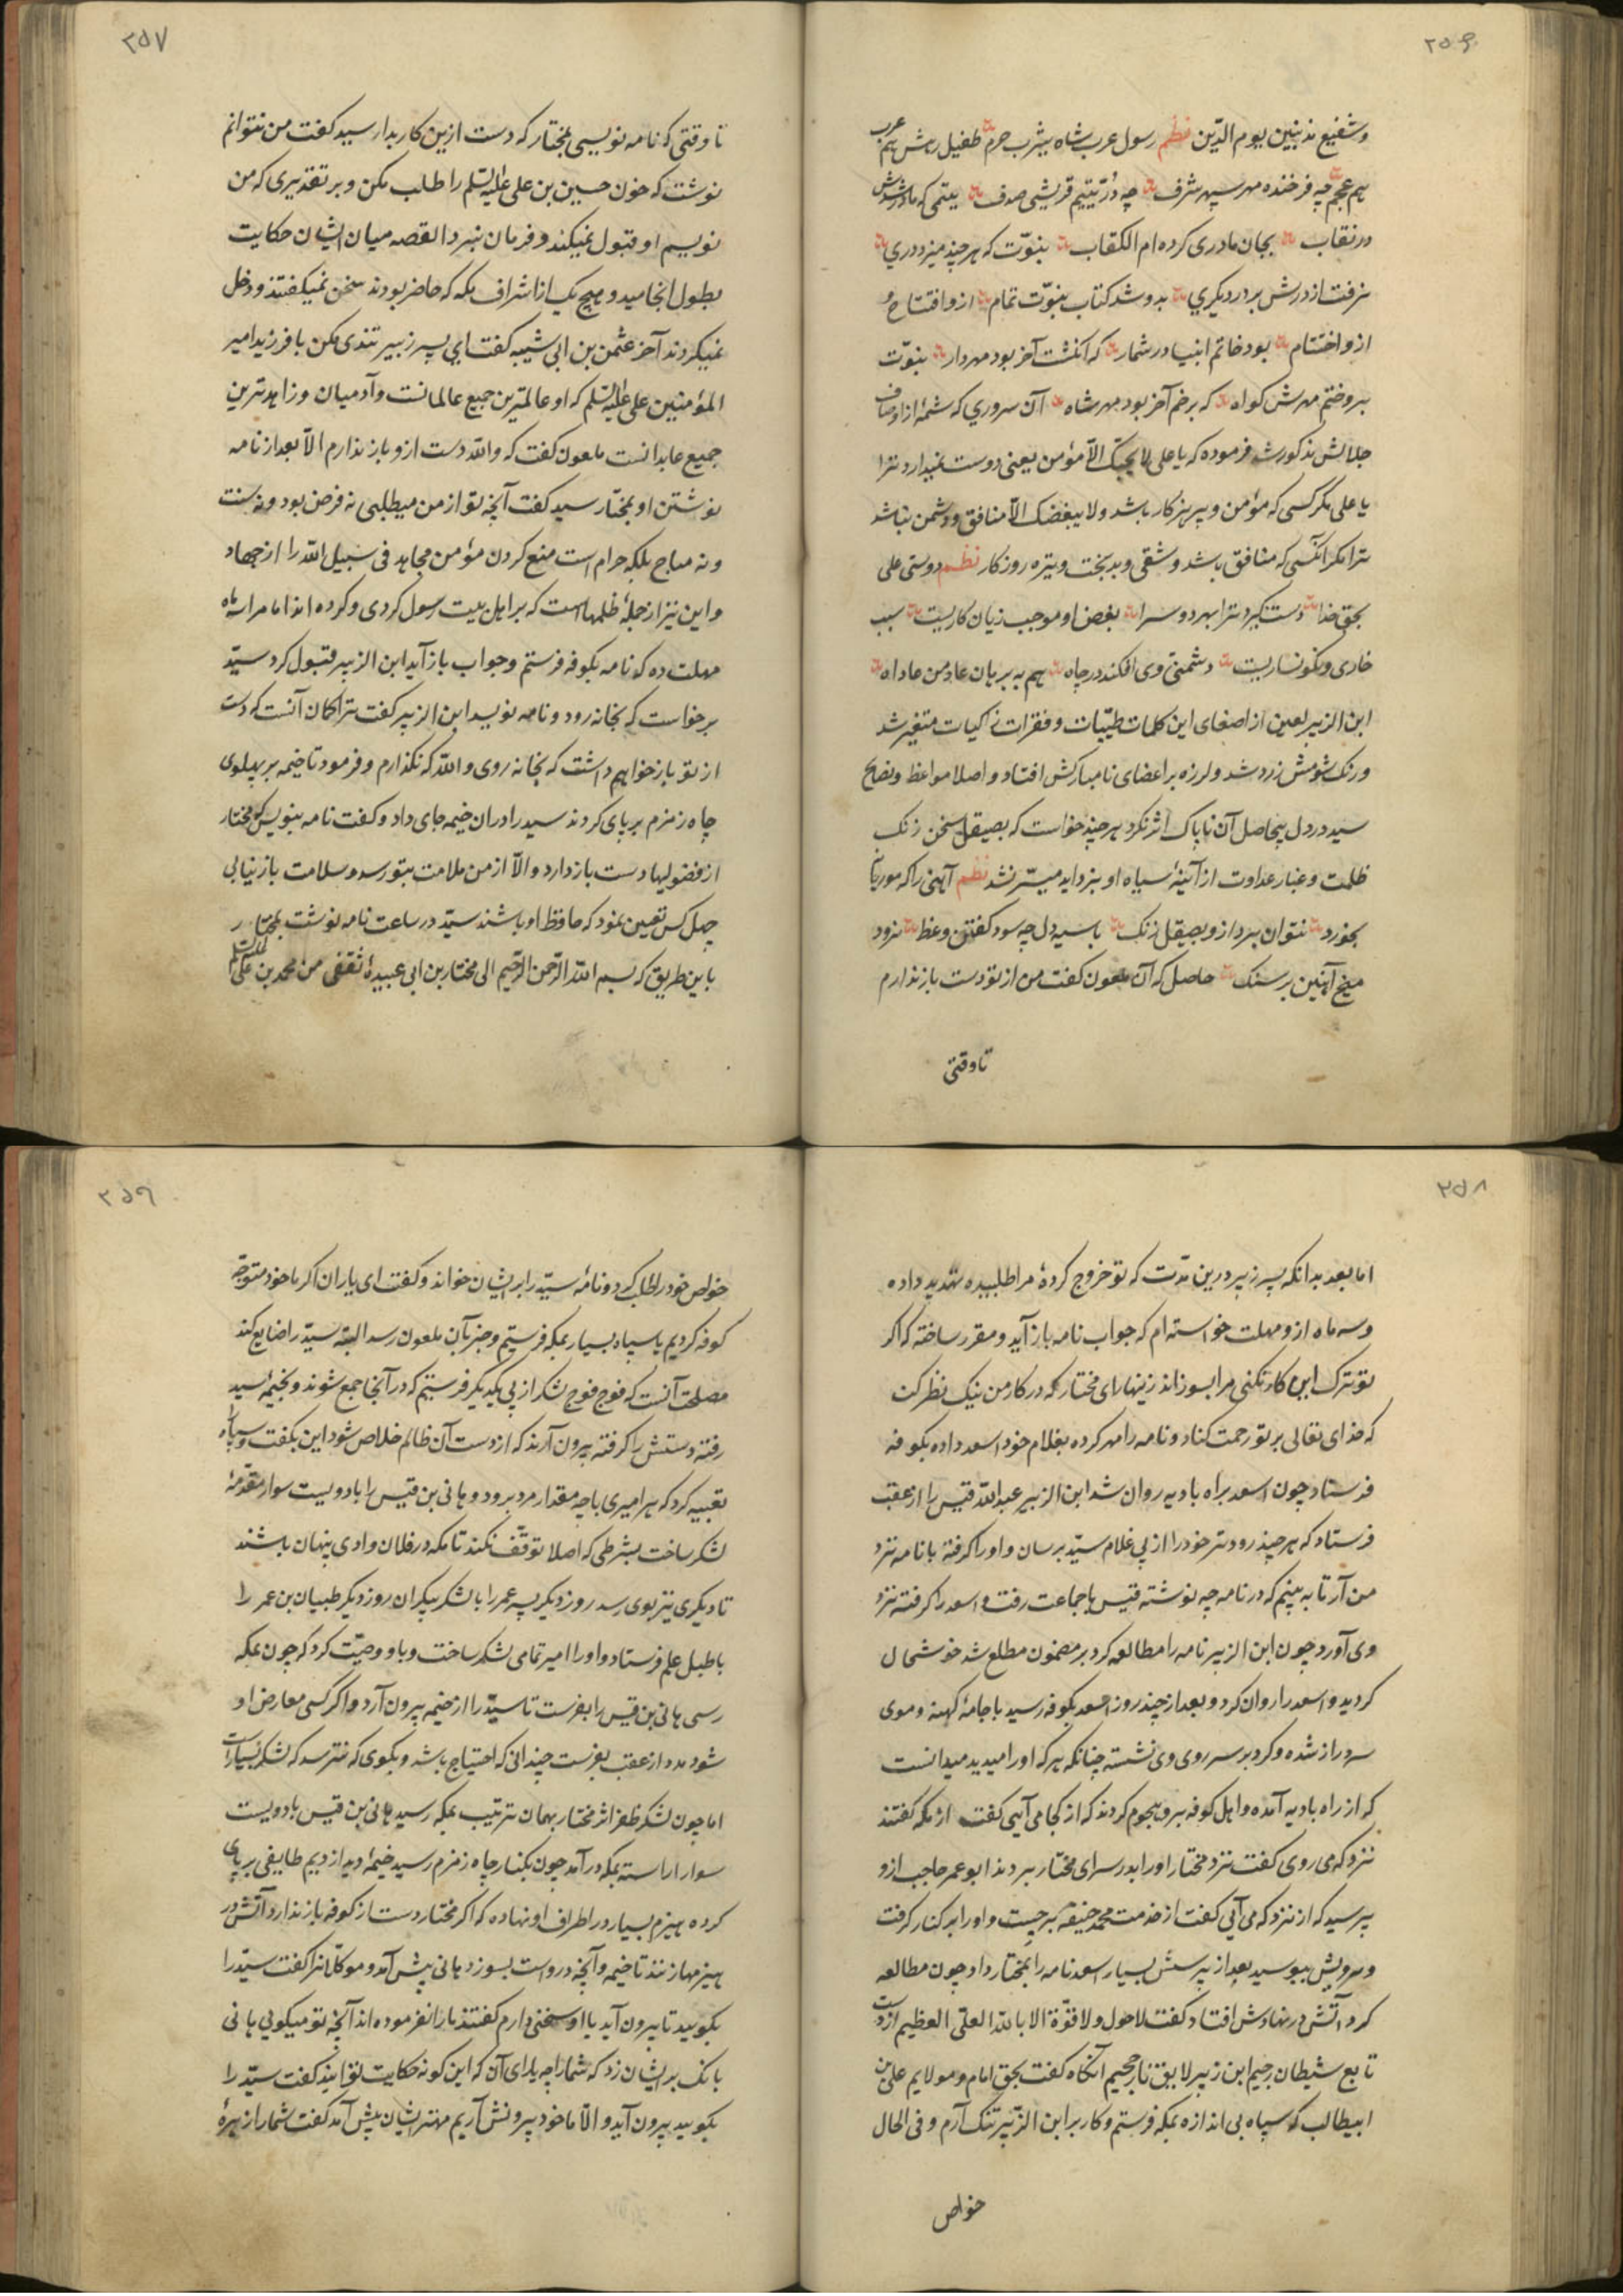 ۲۵۶
و شفیع مذنبین یوم الدین نظم رسول عرب شاه یثرب حرم طفیل رهش هم عرب
هم عجم چه فرخنده مهر سپهر شرف چه درّ یتیم قریشی صدف یتیمی که مادرش
در نقاب بجان مادری کرده ام الکتاب نبوّت که هر چند میزد دری
نرفت از درش بر در دیکری بدو شد کتاب نبوّت تمام ازو افتتاح و
ازو اختتام بود خاتم انبیا در شمار که انکشت آخر بود مهردار نبوّت
برو ختم مهرش کواه که بر ختم آخر بود مهر شاه آن سروری که شمهٔ از اوصاف
جلالش مذکور شد فرموده که یا علی لا یحبک الّا مؤمن یعنی دوست نمیدارد ترا
یا علی مکر کسی که مؤمن و پرهیزکار باشد ولا یبغضک الّا منافق و دشمن نباشد
ترا مکر انکسی که منافق باشد و شقی و بدبخت و تیره روزکار نظم دوستی علی
بحق خدا دست کیرد ترا بهر دو سرا بغض او موجب زیان کاریست سبب
خاری و نکونساریست دشمنی وی افکند در چاه هم به برهان عاد من عاداه
ابن الزبیر لعین از اصغای این کلمات طیّبات و فقرات زاکیات متغیر شد
و رنک شومش زرد شد و لرزه بر اعضای نامبارکش افتاد و اصلا مواعظ و نصایح
سید در دل بیحاصل آن ناپاک اثر نکرد هر چند خواست که بصیقل سخن زنک
ظلمت و غبار عداوت از آئینهٔ سیاه او بزداید میسّر نشد نظم آهنی را که موریانه
بخورد نتوان برد ازو بصیقل زنک با سیه دل چه سود کفتن وعظ نرود
میخ آهنین بر سنک حاصل که آن ملعون کفت من از تو دست باز ندارم
تا وقتی
۲۵۷
تا وقتی که نامه نویسی بمختار که دست ازین کار بدار سید کفت من نتوانم
نوشت که خون حسین بن علی علیه السّلم را طلب مکن و بر تقدیری که من
نویسم او قبول نمیکند و فرمان نبرد القصه میان ایشان حکایت
بطول انجامید و هیچ یک از اشراف مکه که حاضر بودند سخن نمیکفتند و دخل
نمیکردند آخر عثمن بن ابی شیبه کفت ای پسر زبیر تندی مکن با فرزند امیر
المؤمنین علی علیه السّلم که او عالمترین جمیع عالمانست و آدمیان و زاهدترین
جمیع عابدانست ملعون کفت که و الله دست ازو باز ندارم الّا بعد از نامه
نوشتن او بمختار سید کفت آنچه تو از من میطلبی نه فرض بود و نه سنت
و نه مباح بلکه حرام است منع کردن مؤمن مجاهد فی سبیل الله را از جهاد
و این نیز از جملهٔ ظلمهاست که بر اهل بیت رسول کردی و کرده اند اما مرا سه ماه
مهلت ده که نامه بکوفه فرستم و جواب باز آید ابن الزبیر قبول کرد سیّد
برخواست که بخانه رود و نامه نویسد ابن الزبیر کفت ترا کمان آنست که دست
از تو باز خواهم داشت که بخانه روی و الله که نکذارم و فرمود تا خیمه بر پهلوی
چاه زمزم بر پای کردند سید را در آن خیمه جای داد و کفت نامه بنویس که مختار
از فضولیها دست باز دارد و الّا از من ملامت بتو رسد و سلامت باز نیابی
چهل کس تعیین نمود که حافظ او باشند سیّد در ساعت نامه نوشت بمختار
باین طریق که بسم الله الرّحمن الرّحیم الی مختار بن ابی عبیدهٔ ثقفی من محمد بن علی علیه السّلم
۲۵۸
اما بعد بدانکه پسر زبیر درین مدّت که تو خروج کردهٔ مرا طلبیده تهدید داده
و سه ماه ازو مهلت خواسته ام که جواب نامه باز آید و مقرر ساخته که اکر
تو ترک این کار نکنی مرا بسوزاند زینهار ای مختار که در کار من نیک نظر کن
که خدای تعالی بر تو رحمت کناد و نامه را مهر کرده بغلام خود اسعد داده بکوفه
فرستاد چون اسعد براه بادیه روان شد ابن الزبیر عبد الله قیس را از عقب
فرستاد که هر چند زودتر خود را از پی غلام سیّد برسان و او را کرفته با نامه نزد
من آر تا به بینم که در نامه چه نوشته قیس با جماعت رفت و اسعد را کرفته نزد
وی آورد چون ابن الزبیر نامه را مطالعه کرد بر مضمون مطلع شد خوشحال
کردید و اسعد را روان کرد و بعد از چند روز اسعد بکوفه رسید با جامهٔ کهنه و موی
سر دراز شده و کرد بر سر روی وی نشسته چنانکه هر که او را میدید میدانست
که از راه بادیه آمده و اهل کوفه برو هجوم کردند که از کجا می آیی کفت از مکه کفتند
نزد که می روی کفت نزد مختار او را بدر سرای مختار بردند ابو عمر حاجب ازو
پرسید که از نزد که می آیی کفت از خدمت محمد حنیفه برجست و او را بر کنار کرفت
و سرویش ببوسید بعد از پرسش بسیار اسعد نامه را بمختار داد چون مطالعه
کرد آتش در نهادش افتاد کفت لا حول و لا قوّة الا بالله العلیّ العظیم از دست
تابع شیطان رجیم ابن زبیر لایق نار جحیم آنکاه کفت بحق امام و مولایم علی بن
ابیطالب که سپاه بی اندازه بمکه فرستم و کار بر ابن الزّبیر تنک آرم و فی الحال
خواص
۲۵۹
خواص خود را طلب کرد و نامهٔ سیّد را بر ایشان خواند و کفت ای یاران اکر ما خود متوجّه
کوفه کردیم یا سپاه بسیار بمکه فرستیم و خبر بآن ملعون رسد البتّه سیّد را ضایع کند
مصلحت آنست که فوج فوج لشکر از پی یکدیکر فرستیم که در آنجا جمع شوند و بخیمهٔ سید
رفته دستش را کرفته بیرون آرند که از دست آن ظالم خلاص شود این بکفت و سپاه
تعبیه کرد که هر امیری با چه مقدار مرد برود و هانی بن قیس را با دویست سوار مقدّمهٔ
لشکر ساخت بشرطی که اصلا توقّف نکند تا مکه در فلان وادی پنهان باشند
تا دیکری نیز بوی رسد روز دیکر پسه عمر را با لشکر بیکران روز دیکر طبیان بن عمر را
با طبل علم فرستاد و او را امیر تمامی لشکر ساخت و باو وصیّت کرد که چون بمکه
رسی هانی بن قیس را بفرست تا سیّد را از خیمه بیرون آرد و اکر کسی معارض او
شود مدد از عقب بفرست چندانی که احتیاج باشد و بکوی که نترسد که لشکر بسیارست
اما چون لشکر ظفر اثر مختار بهمان ترتیب بمکه رسید هانی بن قیس با دویست
سوار اراسته بمکه در آمد چون بکنار چاه زمزم رسید خیمهٔ دید از دیم طایفی بر پای
کرده هیزم بسیار در اطراف او نهاده که اکر مختار دست از کوفه باز ندارد آتش در
هیزمها زنند تا خیمه و آنچه دروست بسوزد هانی پیش آمد و موکلانرا کفت سیّد را
بکویید تا بیرون آید با او سخنی دارم کفتند ما را نفرموده اند آنچه تو میکویی هانی
بانک بر ایشان زد که شما را چه یارای آن که این کونه حکایت توانید کفت سیّد را
بکویید بیرون آید و الّا ما خود بیرونش آریم مهتر ایشان پیش آمد کفت شما را از زهرهٔ